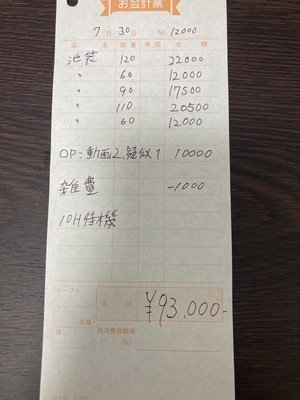 お会計票
7月30日 No.12000
品名 数量 単価 金額
池袋 120 22000
〃 60 12000
〃 90 17500
〃 110 20500
〃 60 12000
OP:動画2,疑似1 10000
雑費 -1000
10H待機
テーブル
名様
係
合計 ¥93,000-
内消費税額等
%